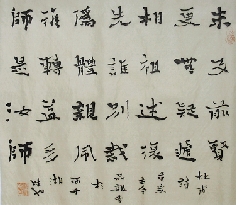 未及前賢
更無疑遞
相祖述復
先誰別裁
偽體親風
雅轉益多
師是汝師